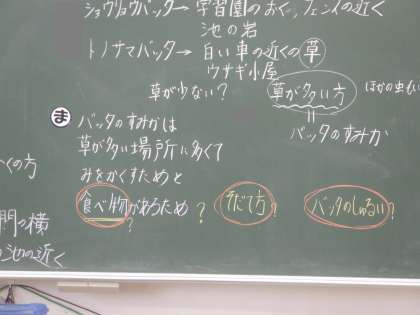 ショウリョウバッタ→学習園のおく、フェンスの近く
池の岩
トノサマバッタ→白い車の近くの草
ウサギ小屋
草が少ない？
草が多い方
ほかの虫も
=
バッタのすみか
ま
バッタのすみかは
草が多い場所に多くて
みをかくすためと
食べ物があるため？
?
そだて方？
バッタのしゅるい？
?
くの方
門の横
の池の近く